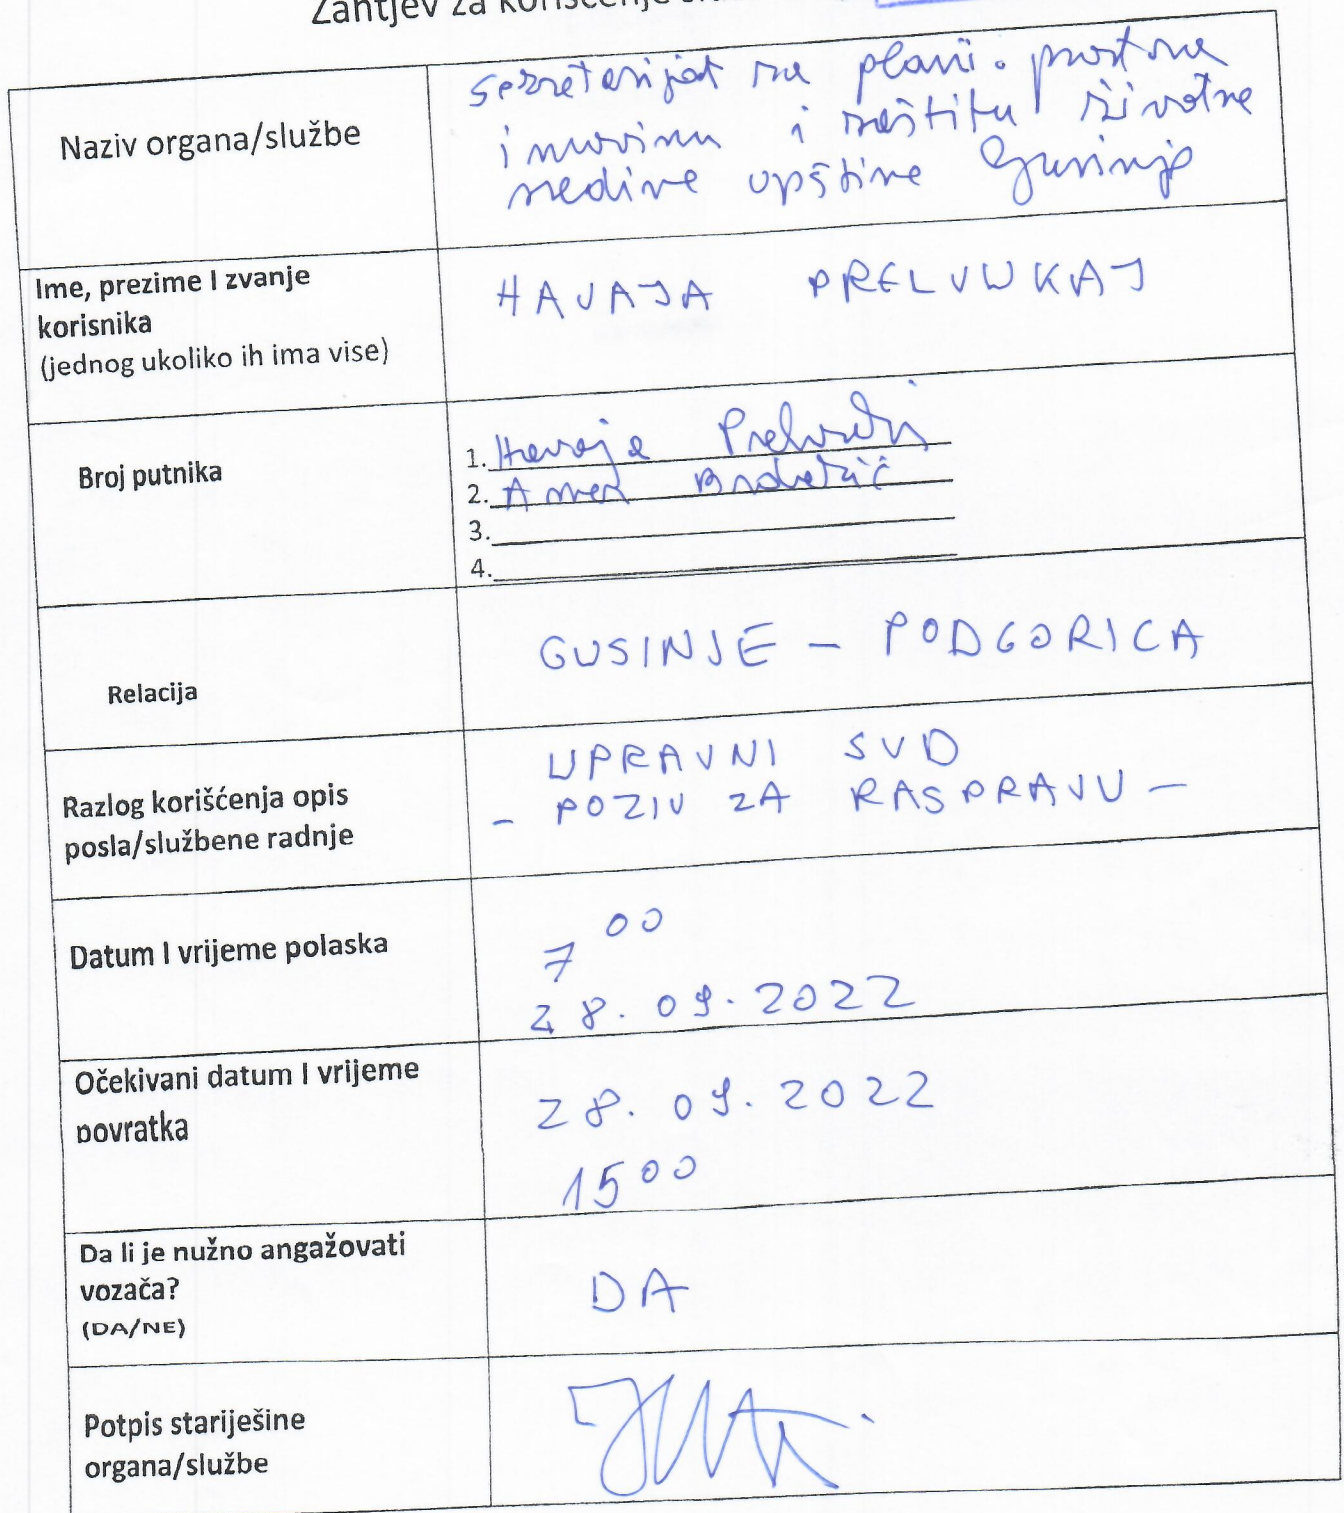 Zahtjev za korišćenje
Naziv organa/službe
Sekretarijat za plani. prostora
imovinu i zaštitu životne
sredine opštine Gusinje
Ime, prezime I zvanje
korisnika
(jednog ukoliko ih ima vise)
HAVAJA PRELVUKAJ
Broj putnika
1. Havaja
2. Amer
3.
4.
Relacija
GUSINJE - PODGORICA
Razlog korišćenja opis
posla/službene radnje
UPRAVNI SUD
- POZIV ZA RASPRAVU -
Datum I vrijeme polaska
7 00
28. 09. 2022
Očekivani datum I vrijeme
povratka
28. 09. 2022
15 00
Da li je nužno angažovati
vozača?
(DA/NE)
DA
Potpis starješine
organa/službe